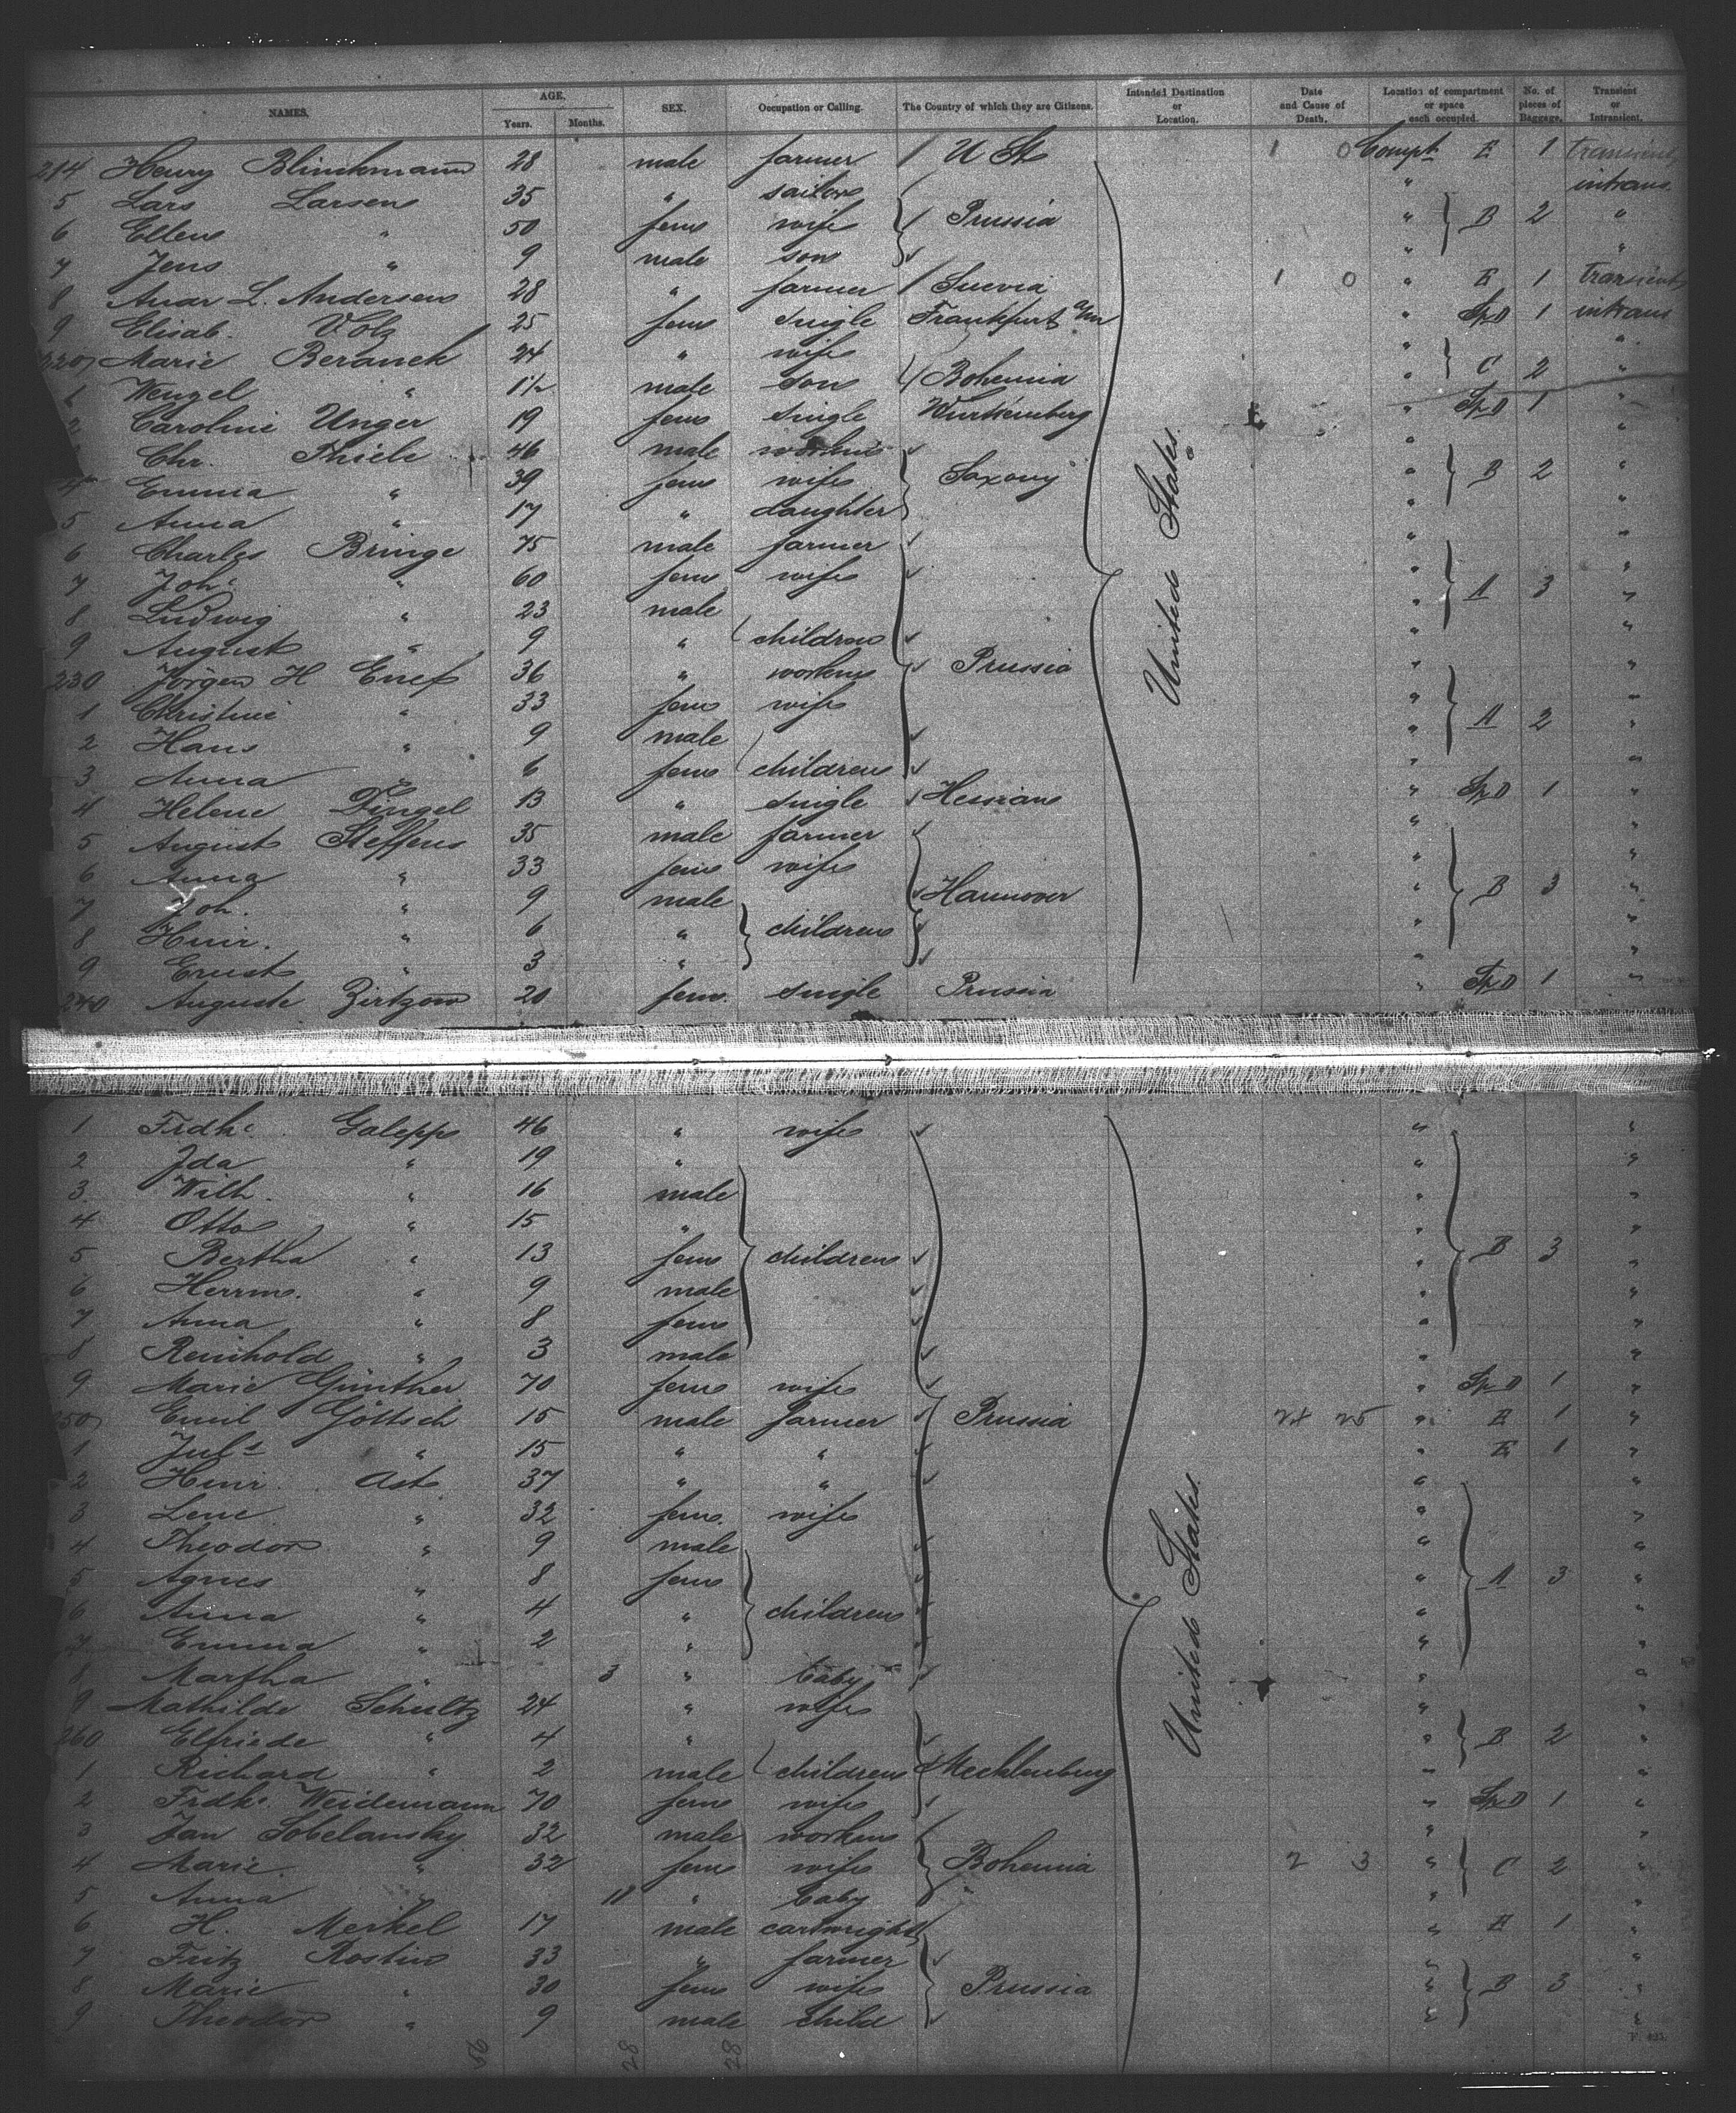 NAMES. AGE. SEX. Occupation or Calling. The Country of which they are Citizens. Intended Destination or Location. Date and Cause of Death. Location of compartment or space each occupied. No. of pieces of Baggage. Transient or Intransient.
Years. Months.
214 Henry Blinckmann 28 male farmer U St 1 0 Compt E 1 transient
5 Lars Larsen 35 " sailor " intrans
6 Ellen " 50 fem wife Prussia " B 2 "
7 Jens " 9 male son " "
8 Andr L. Andersen 28 " farmer Suevia 1 0 " E 1 transient
9 Elisab. Volz 25 fem single Frankfurt a/m " Sp D 1 intrans
220 Marie Beranek 24 " wife " "
1 Wenzel " 1 1/2 male son Bohemia " C 2 "
2 Caroline Unger 19 fem single Wurttemberg " Sp D 1 "
Chr. Thiele 46 male " "
4 Emma " 39 fem wife Saxony " B 2 "
5 Anna " 17 " daughter " "
6 Charles Bringe 75 male farmer " "
7 Johe " 60 fem wife " "
8 Ludwig " 23 male " A 3 "
9 August " 9 " children " "
230 Jörgen H 36 " workm Prussia " "
1 Christine " 33 fem wife " "
2 Hans " 9 male " A 2 "
3 Anna " 6 fem children " "
4 Helene Dingel 13 " single Hessian " Sp D 1 "
5 August Steffens 35 male farmer " "
6 Anna " 33 fem wife " "
7 Joh. " 9 male Hannover " B 3 "
8 Heinr. " 6 " children " "
9 Ernst " 3 " " "
240 Auguste Zirtzow 20 fem. single Prussia " Sp D 1 "
United States.
1 Frdke. Galepp 46 " wife " "
2 Ida " 19 " " "
3 Wilh. " 16 male " "
4 Otto " 15 " " "
5 Bertha " 13 fem children " B 3 "
6 Herrm. " 9 male " "
7 Anna " 8 fem " "
8 Reinhold " 3 male " "
9 Marie Günther 70 fem wife " Sp D 1 "
250 Emil Göttsch 15 male farmer Prussia 24 25 " E 1 "
1 Juls " 15 " " " E 1 "
2 Heinr. Ast 37 " " " "
3 Lene " 32 fem. wife " "
4 Theodor " 9 male " "
5 Agnes " 8 fem " A 3 "
6 Anna " 4 " children " "
7 Emma " 2 " " "
8 Martha " 3 " baby " "
9 Mathilde Schultz 24 " wife " "
260 Elfriede " 4 " " B 2 "
1 Richard " 2 male children Mecklenburg " "
2 Frdke. Weidemann 70 fem wife " Sp D 1 "
3 Jan Sobelansky 32 male workm " "
4 Marie " 32 fem wife Bohemia 2 3 " C 2 "
5 Anna " " baby " "
6 H. Merkel 17 male cartwright " E 1 "
7 Fritz Rostin 33 " farmer " "
8 Marie " 30 fem wife Prussia " B 3 "
9 Theodor " 9 male child " "
United States.
56 28 28